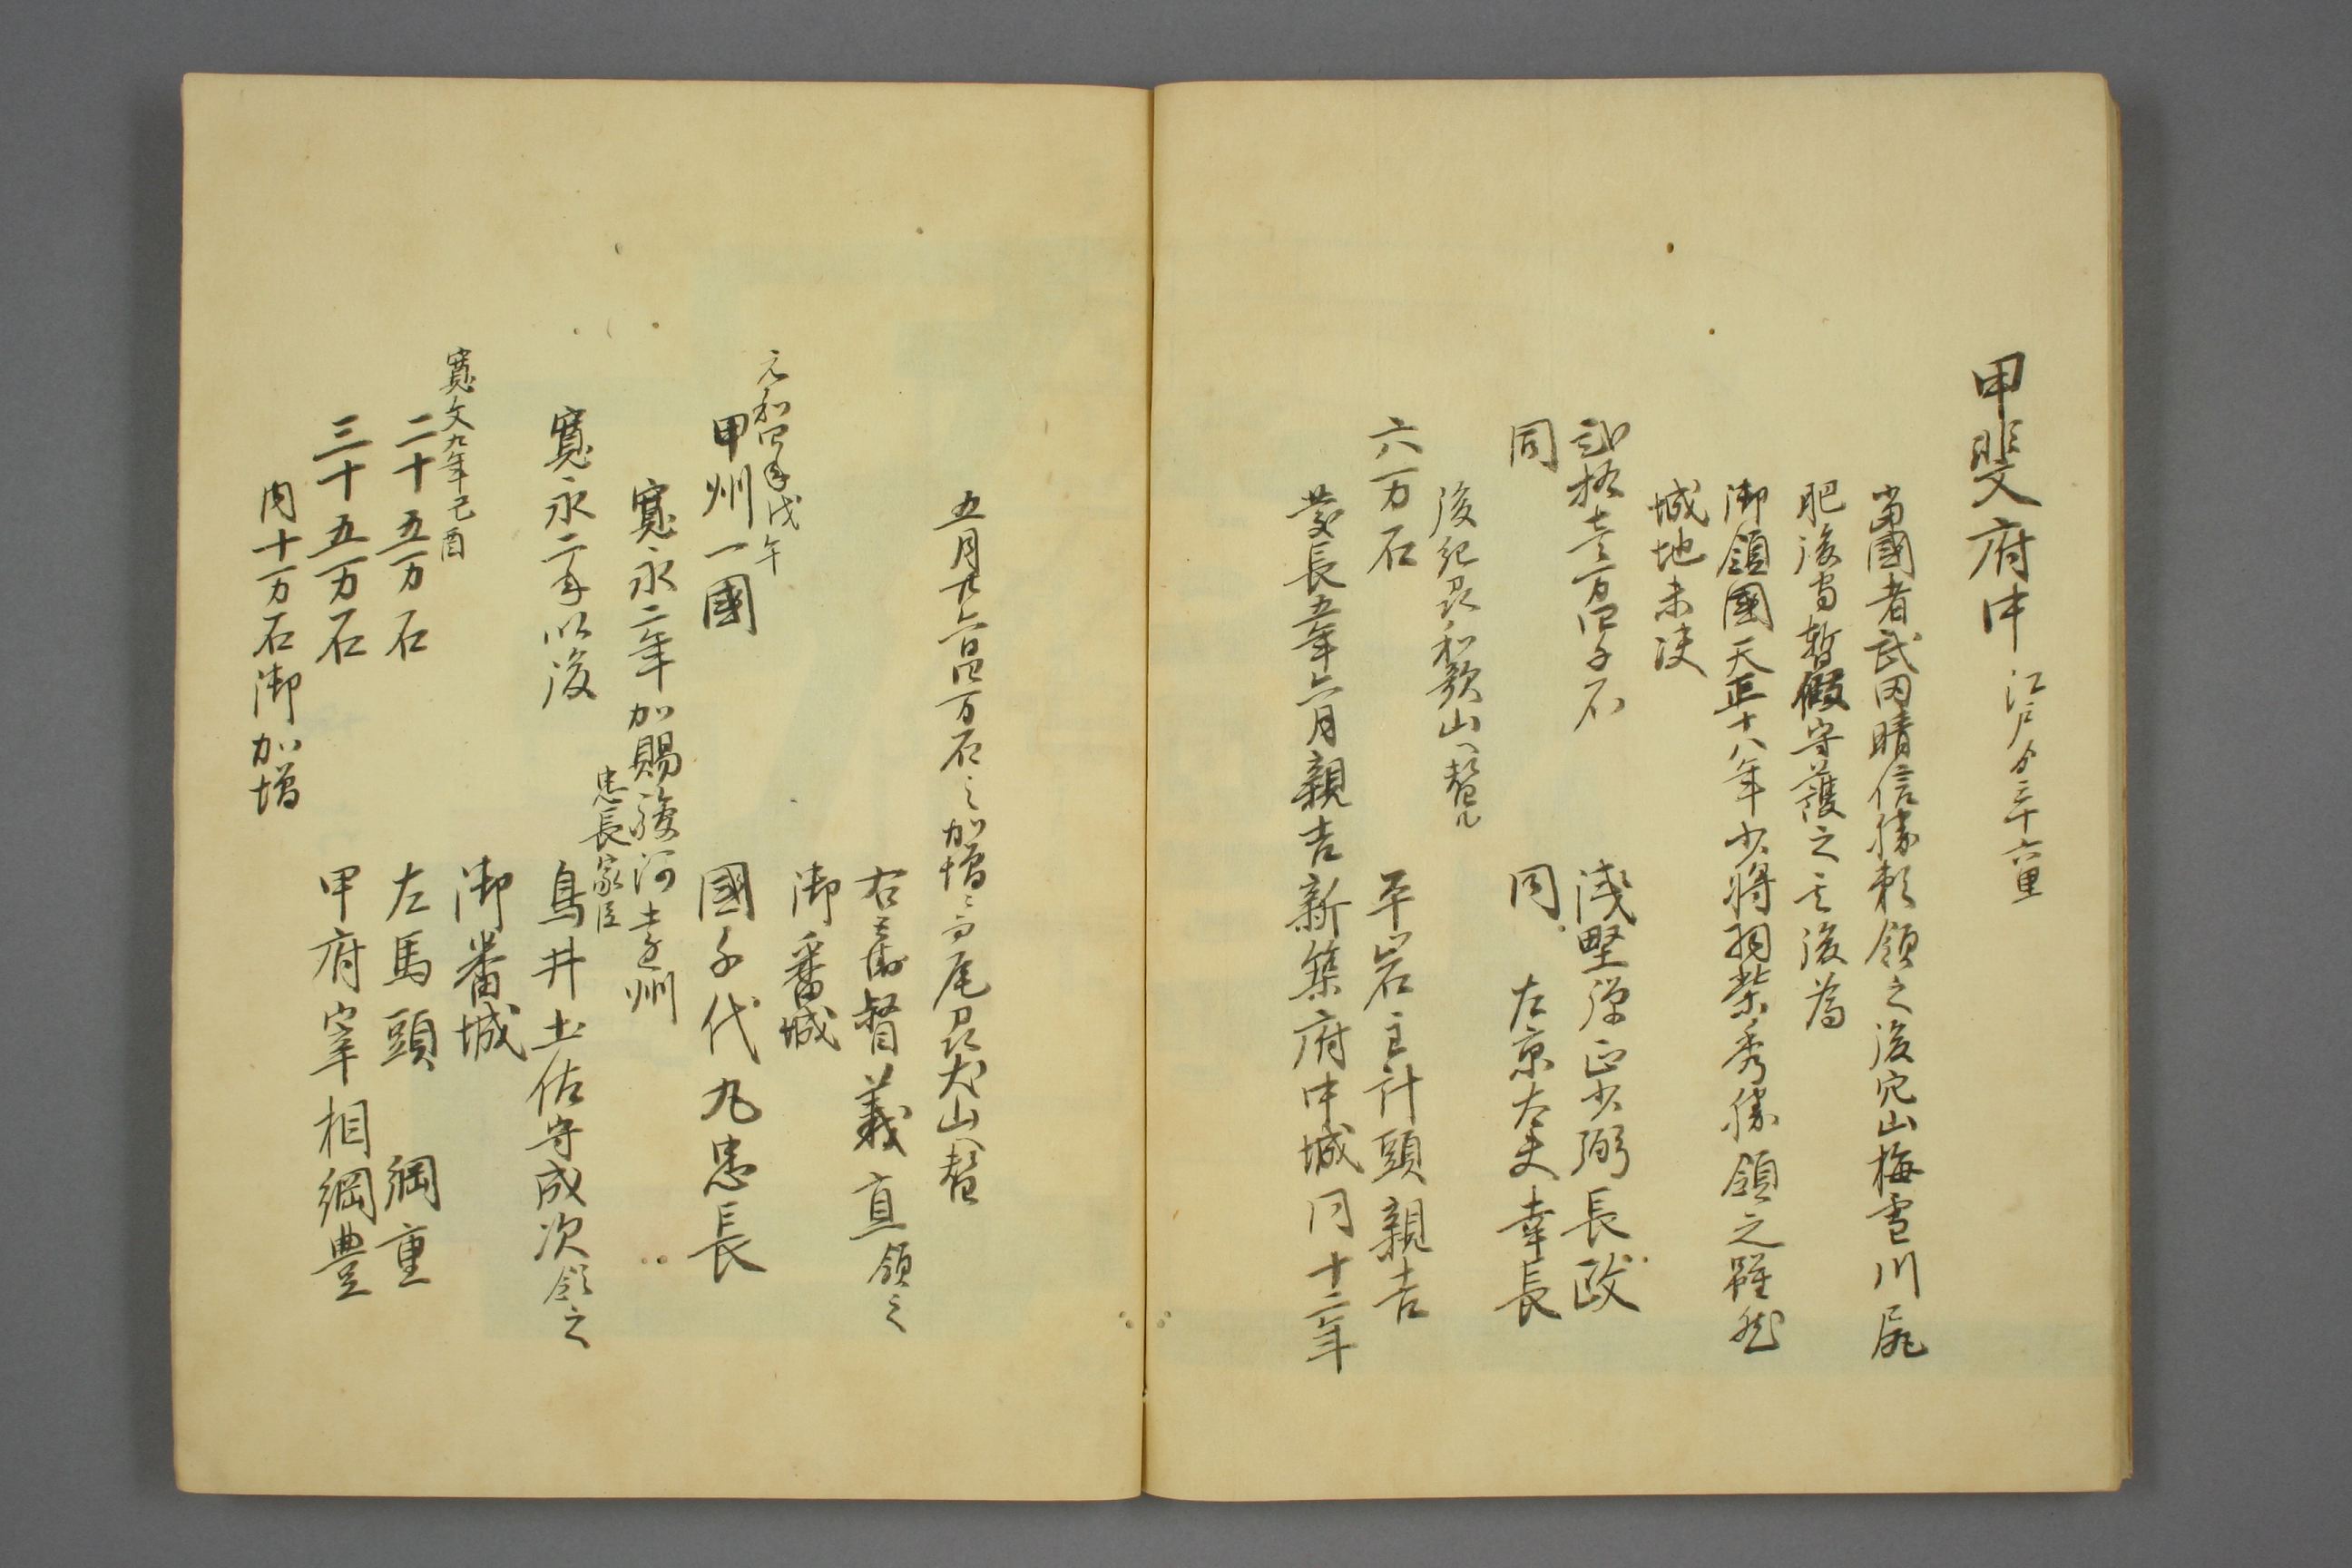 甲斐府中 江戸ゟ三十六里
當國者武田晴信勝頼領之後穴山梅雪川尻
肥後守暫假守護之其後為
御領國天正十八年少将羽柴秀勝領之雖然
城地未決
弐拾壱万四千石 浅野弾正少弼長政
同 同 左京大夫幸長
後紀州和歌山へ替ル
六万石 平岩主計頭親吉
慶長五年六月親吉新築府中城同十二年
五月廿六日四万石之加増ニ而尾州犬山へ替
右兵衛督義直領之
御番城
元和四年戊午
甲州一國 國千代丸忠長
寛永二年加賜駿河遠州
忠長家臣
寛永二年以後 鳥井土佐守成次領之
御番城
寛文九年己酉
二十五万石 左馬頭 綱重
三十五万石 甲府宰相綱豊
内十万石御加増